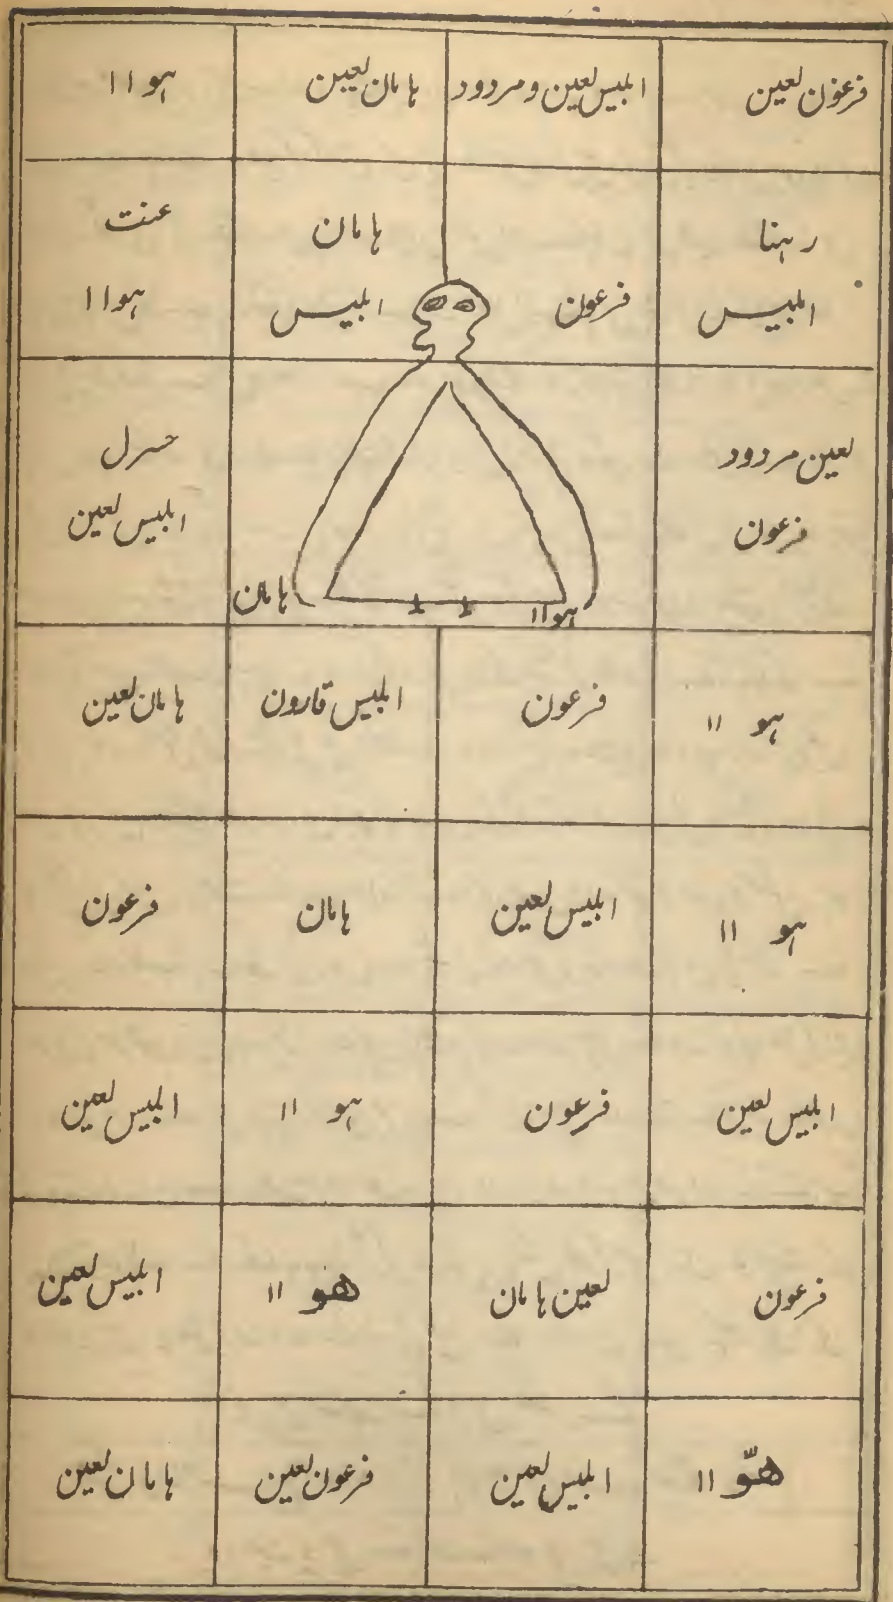 فرعون لعین ابلیس لعین و مردود ہامان لعین ہو ۱۱
رہنا ہامان عنت
ابلیس فرعون ابلیس ہو ۱۱
لعین مردود حسرل
فرعون ابلیس لعین
ہو ۱۱ ہامان
ہو ۱۱ فرعون ابلیس قارون ہامان لعین
ہو ۱۱ ابلیس لعین ہامان فرعون
ابلیس لعین فرعون ہو ۱۱ ابلیس لعین
فرعون لعین ہامان ھو ۱۱ ابلیس لعین
ھوّ ۱۱ ابلیس لعین فرعون لعین ہامان لعین